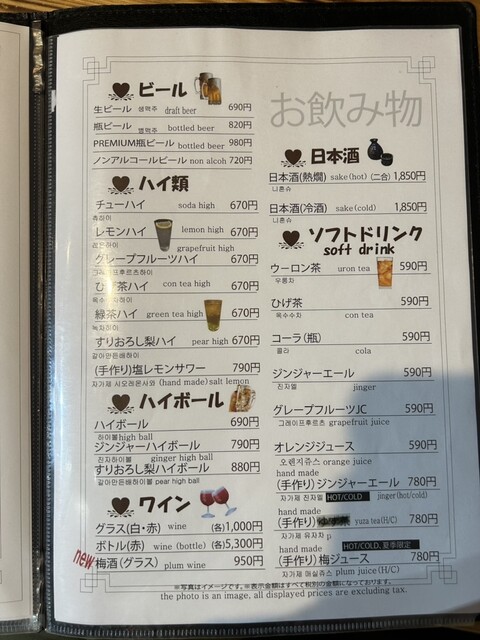 お飲み物
ビール
生ビール 생맥주 draft beer 690円
瓶ビール 병맥주 bottled beer 820円
PREMIUM瓶ビール bottled beer 980円
ノンアルコールビール non alcoh 720円
ハイ類
チューハイ soda high 670円
츄하이
レモンハイ lemon high 670円
레몬하이
grapefruit high
グレープフルーツハイ 670円
그레이프후르츠하이
ひげ茶ハイ con tea high 670円
옥수수차하이
緑茶ハイ green tea high 670円
녹차하이
すりおろし梨ハイ pear high 670円
갈아만든배하이
(手作り)塩レモンサワー 790円
자가제 시오레몬사와 (hand made) salt lemon
ハイボール
ハイボール 690円
하이볼 high ball
ジンジャーハイボール 790円
진자하이볼 ginger high ball
すりおろし梨ハイボール 880円
갈아만든배하이볼 pear high ball
ワイン
グラス(白・赤) wine (各)1,000円
ボトル(赤) wine (bottle) (各)5,300円
new 梅酒(グラス) plum wine 950円
日本酒
日本酒(熱燗) sake(hot) (二合) 1,850円
니혼슈
日本酒(冷酒) sake(cold) 1,850円
니혼슈
ソフトドリンク
soft drink
ウーロン茶 uron tea 590円
우롱차
ひげ茶 590円
옥수수차 con tea
コーラ(瓶) 590円
콜라 cola
ジンジャーエール 590円
진자엘 jinger
グレープフルーツJC 590円
그레이프후르츠 grapefruit juice
オレンジジュース 590円
오렌지쥬스 orange juice
hand made
(手作り)ジンジャーエール 780円
자가제 진자엘 HOT/COLD jinger(hot/cold)
hand made
(手作り) yuza tea(H/C) 780円
자가제 유자차 p
hand made HOT/COLD, 夏季限定
(手作り)梅ジュース 780円
자가제 매실쥬스 plum juice(H/C)
※写真はイメージです。※表示金額はすべて税別の金額になっております。
the photo is an image, all displayed prices are excluding tax.